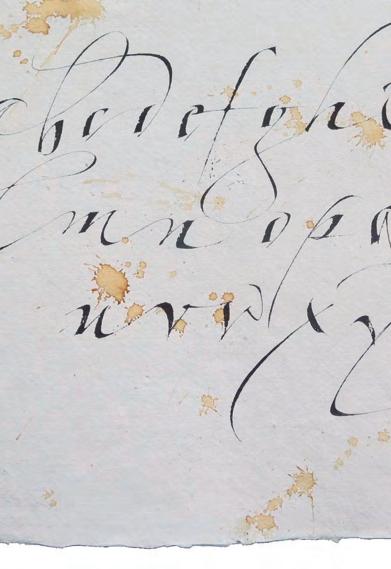 a b c d e f g h
m n o p q
u v w x y